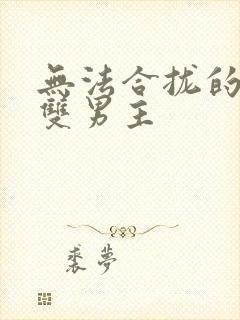 無法合拢的
雙男主
裘夢